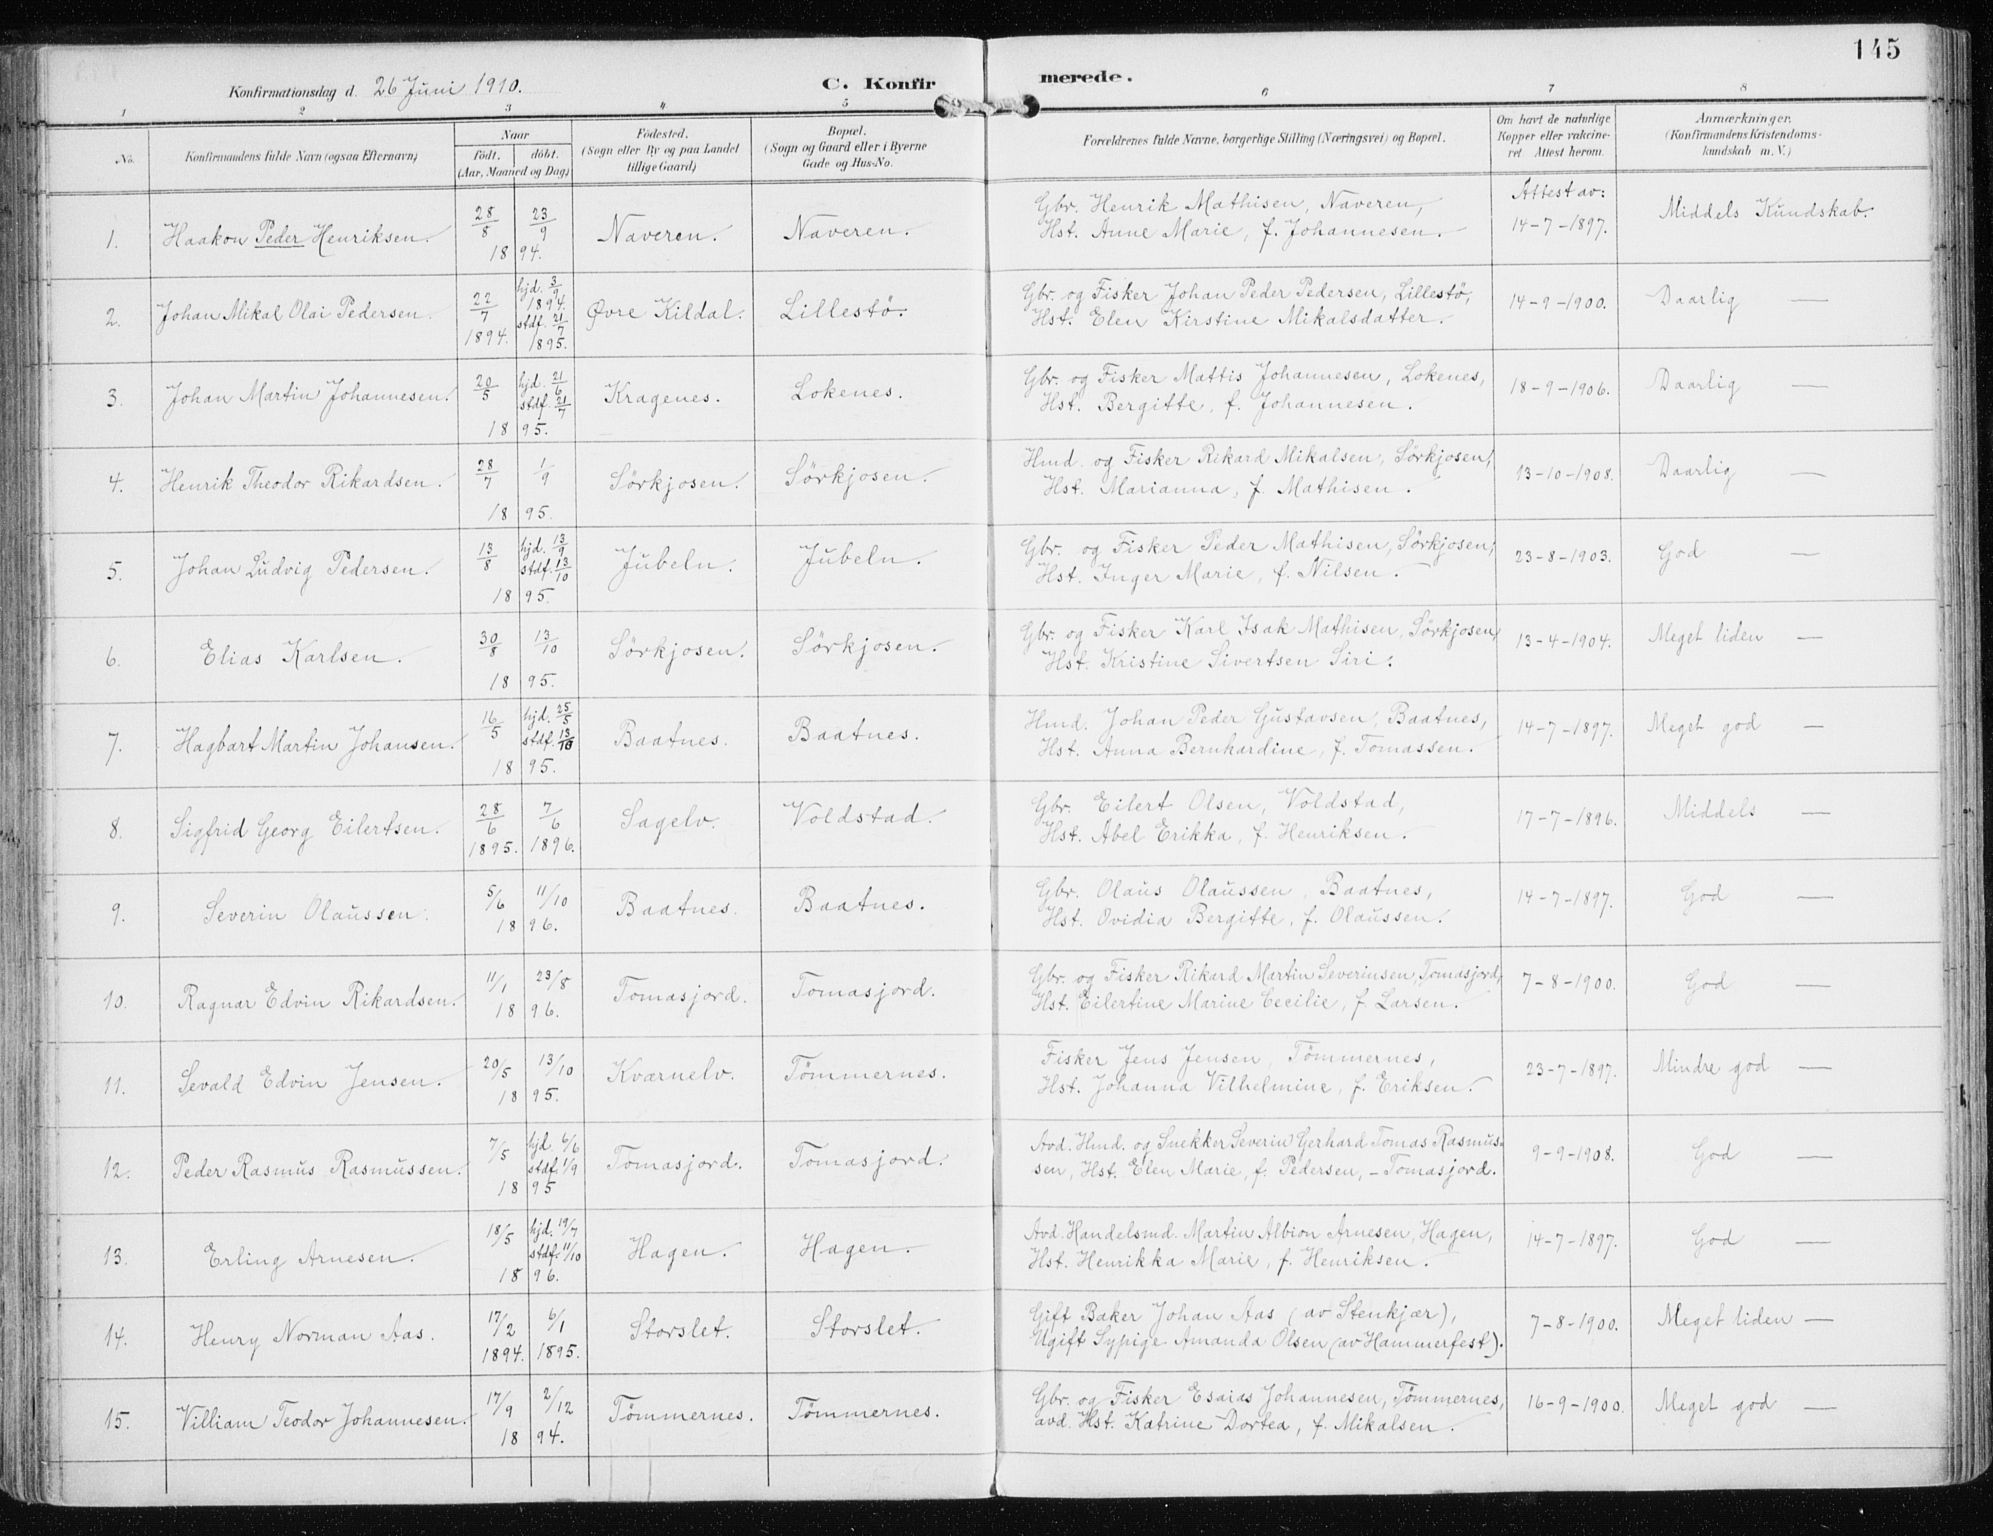 145
Konfirmationsdag d. 26 Juni 1910. C. Konfirmerede.
1 2 3 4 5 6 7 8
No. Konfirmandens fulde Navn (ogsaa Efternavn) Naar født, døbt. (Aar, Maaned og Dag) Fødested. (Sogn eller By og paa Landet tillige Gaard) Bopæl. (Sogn og Gaard eller i Byerne Gade og Hus-No. Forældrenes fulde Navne, borgerlige Stilling (Næringsvei) og Bopæl. Om havt de naturlige Kopper eller vakcineret. Attest herom. Anmærkninger. (Konfirmandens Kristendomskundskab m. V.)
1. Haakon Peder Henriksen. 28/8 23/9 1894. Naveren. Naveren. Gbr. Henrik Mathisen, Naveren, Attest av: Middels Kundskab.
Hst. Anne Marie, f. Johannesen. 14-7-1897.
2. Johan Mikal Olai Pedersen. 22/7 1894. hjd. 3/9 1894. stdf. 21/7 1895. Øvre Kildal. Lillestö. Gbr. og Fisker Johan Peder Pedersen, Lillestö, 14-9-1900. Daarlig —
Hst. Elen Kirstine Mikalsdatter.
3. Johan Martin Johannesen. 20/5 hjd. 21/6 stdf. 21/7 1895. Kragenes. Lokenes. Gbr. og Fisker Mattis Johannesen, Lokenes, 18-9-1906. Daarlig —
Hst. Bergitte, f. Johannesen.
4. Henrik Theodor Rikardsen. 28/7 1/9 1895. Sörkjosen. Sörkjosen. Hmd. og Fisker Rikard Mikalsen, Sörkjosen, 13-10-1908. Daarlig —
Hst. Marianna, f. Mathisen.
5. Johan Ludvig Pedersen. 13/8 hjd. 13/9 stdf. 13/10 1895. Jubeln. Jubeln. Gbr. og Fisker Peder Mathisen, Sörkjosen, 23-8-1903. God —
Hst. Inger Marie, f. Nilsen.
6. Elias Karlsen. 30/8 13/10 1895. Sörkjosen. Sörkjosen. Gbr. og Fisker Karl Isak Mathisen, Sörkjosen, 13-4-1904. Meget liden —
Hst. Kristine Sivertsen Siri.
7. Hagbart Martin Johansen. 16/5 hjd. 25/5 stdf. 13/10 1895. Baatnes. Baatnes. Hmd. Johan Peder Gustavsen, Baatnes, 14-7-1897. Meget god —
Hst. Anna Bernhardine, f. Tomassen.
8. Sigfrid Georg Eilertsen. 28/6 1895. 7/6 1896. Sagelv. Voldstad. Gbr. Eilert Olsen, Voldstad, 17-7-1896. Middels —
Hst. Abel Erikka, f. Henriksen.
9. Severin Olaussen. 5/6 11/10 1896. Baatnes. Baatnes. Gbr. Olaus Olaussen, Baatnes, 14-7-1897. God —
Hst. Ovidia Bergitte, f. Olaussen.
10. Ragnar Edvin Rikardsen. 11/1 23/8 1896. Tomasjord. Tomasjord. Gbr. og Fisker Rikard Martin Severinsen, Tomasjord, 7-8-1900. God —
Hst. Eilertine Marine Cecilie, f. Larsen.
11. Sevald Edvin Jensen. 20/5 13/10 1895. Kvarnelv. Tömmernes. Fisker Jens Jensen, Tömmernes, 23-7-1897. Mindre god —
Hst. Johanna Vilhelmine, f. Eriksen.
12. Peder Rasmus Rasmussen. 7/5 hjd. 6/6 stdf. 1/9 1895 Tomasjord. Tomasjord. Avd. Hmd. og Snekker Severin Gerhard Tomas Rasmus- 9-9-1908. God —
sen, Hst. Elen Marie, f. Pedersen, - Tomasjord.
13. Erling Arnesen. 18/5 hjd. 19/7 stdf. 11/10 1896. Hagen. Hagen. Avd. Handelsmd. Martin Albion Arnesen, Hagen, 14-7-1897. God —
Hst. Henrikka Marie, f. Henriksen.
14. Henry Norman Aas. 17/2 1894. 6/1 1895. Storslet. Storslet. Gift Baker Johan Aas (av Stenkjær), 7-8-1900. Meget liden —
Ugift Sypige Amanda Olsen (av Hammerfest).
15. Villiam Teodor Johannesen. 17/9 2/12 1894. Tömmernes. Tömmernes. Gbr. og Fisker Esaias Johannesen, Tömmernes, 16-9-1900. Meget god —
avd. Hst. Katrine Dortea, f. Mikalsen.